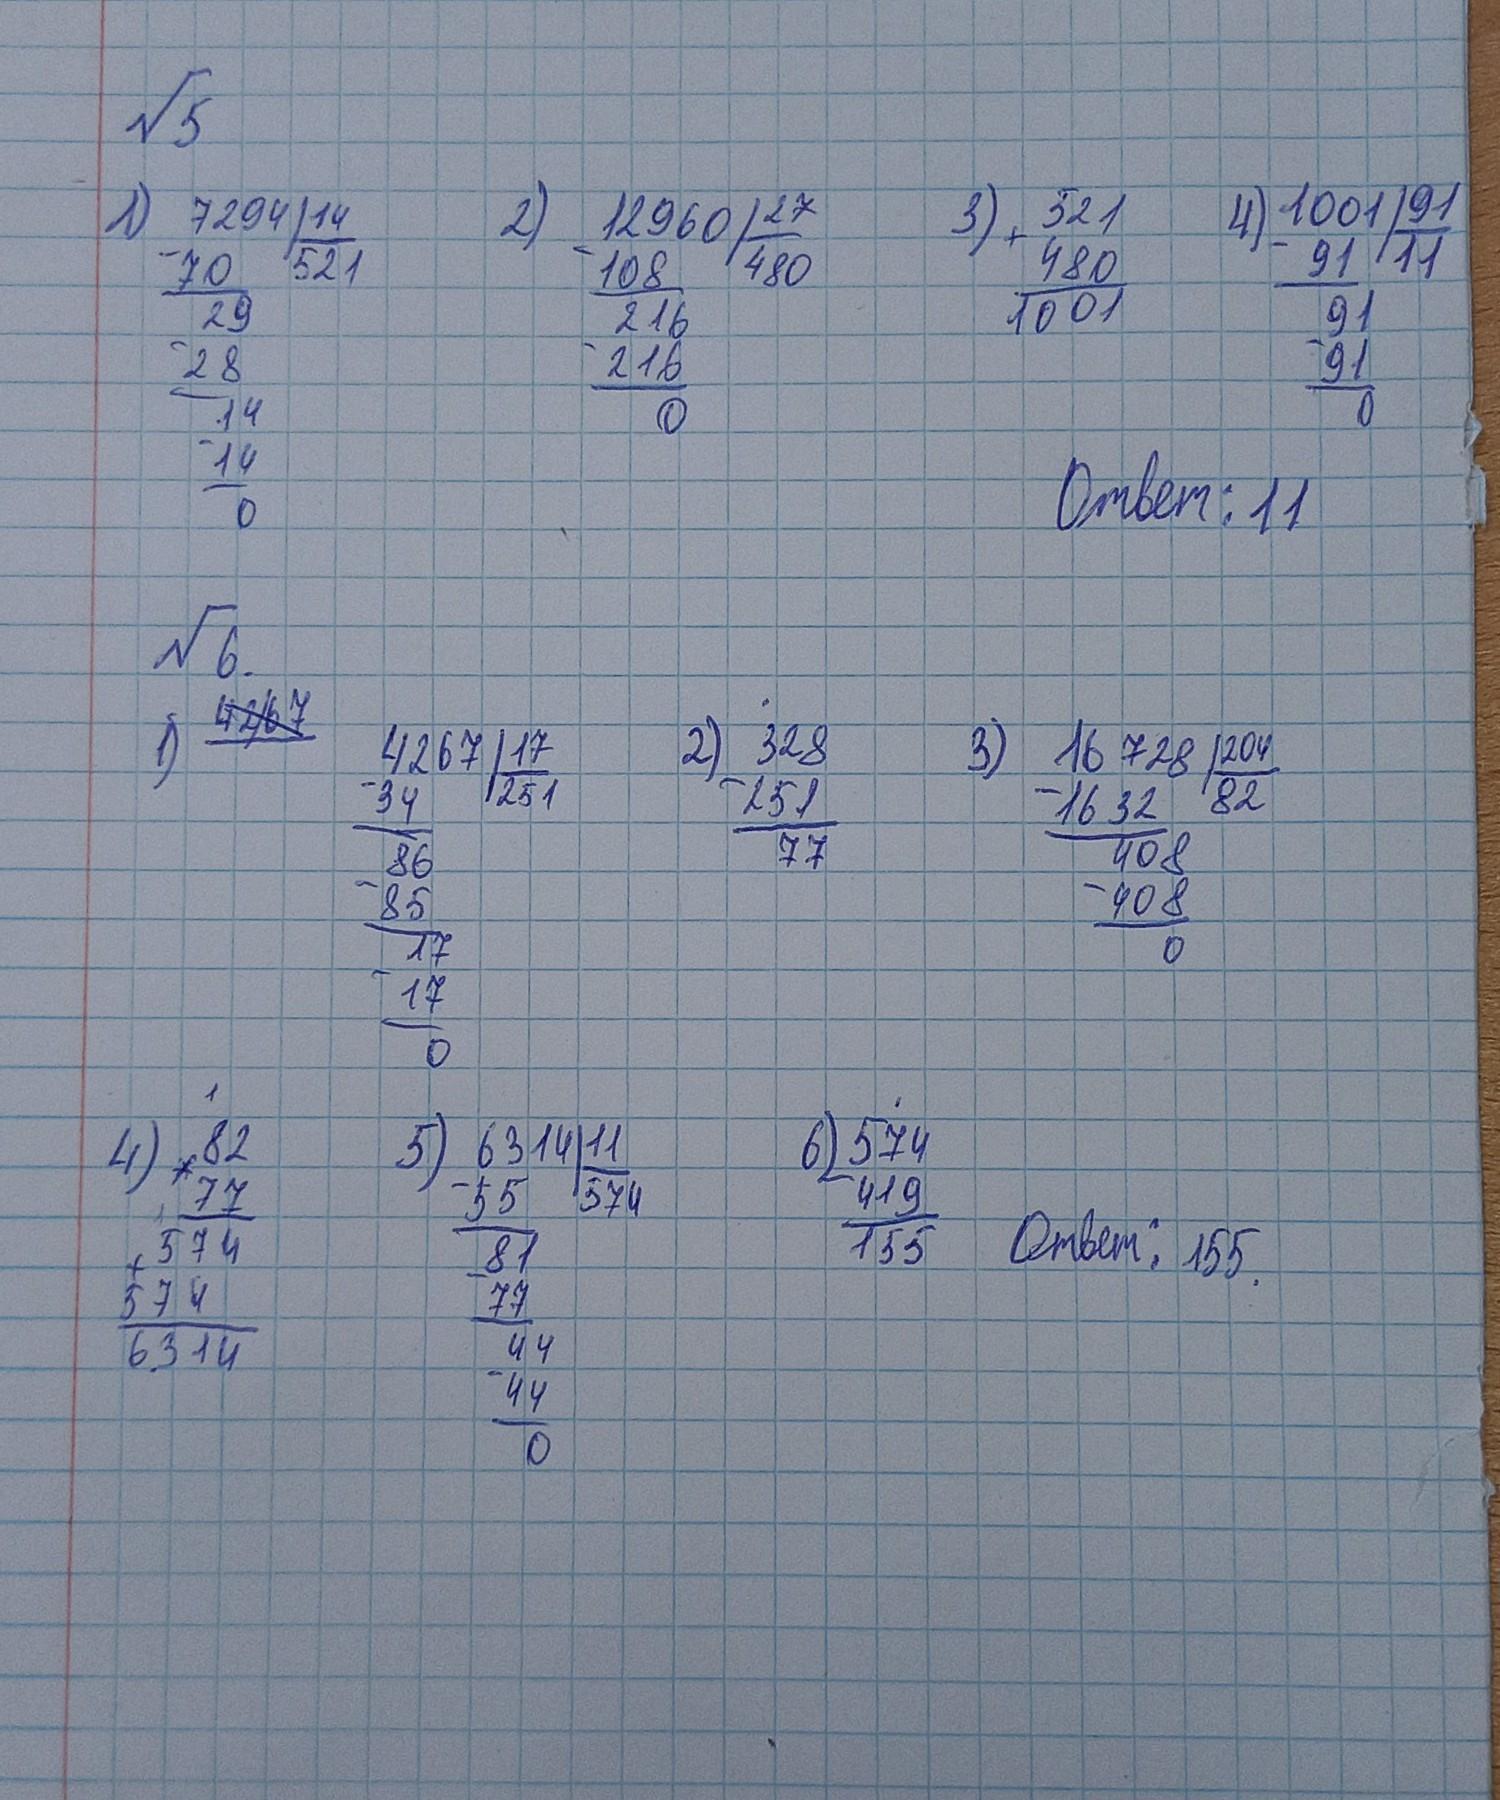 √5
1) 7294 | 14
- 70 521
29
- 28
14
- 14
0
2) 12960 | 27
- 108 480
216
- 216
0
3) 521
+ 480
1001
4) 1001 | 91
- 91 11
91
- 91
0
Ответ: 11
√6.
1) 4267
4267 | 17
- 34 251
86
- 85
17
- 17
0
2) 328
- 251
77
3) 16 728 | 204
- 1632 82
408
- 408
0
1
4) 82
* 77
574
+ 574
6314
5) 6314 | 11
- 55 574
81
- 77
44
- 44
0
6) 574
- 419
155
Ответ: 155.